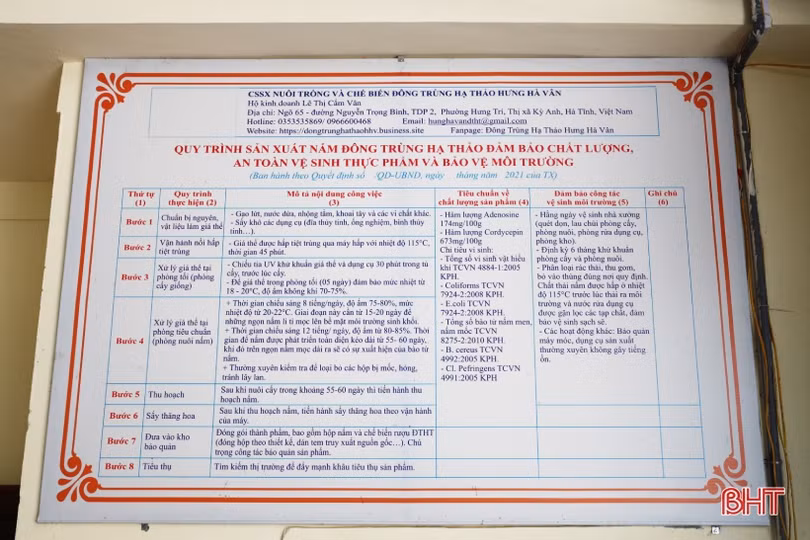 CSSX NUÔI TRỒNG VÀ CHẾ BIẾN ĐÔNG TRÙNG HẠ THẢO HƯNG HÀ VÂN
Hộ kinh doanh Lê Thị Cẩm Vân
Địa chỉ: Ngõ 65 - đường Nguyễn Trọng Bình, TDP 2, Phường Hưng Trí, Thị xã Kỳ Anh, Hà Tĩnh, Việt Nam
Hotline: 0353535869/ 0966600468 Email: hunghavandtht@gmail.com
Website: https://dongtrunghathaohhv.business.site Fanpage: Đông Trùng Hạ Thảo Hưng Hà Vân
QUY TRÌNH SẢN XUẤT NẤM ĐÔNG TRÙNG HẠ THẢO ĐẢM BẢO CHẤT LƯỢNG,
AN TOÀN VỆ SINH THỰC PHẨM VÀ BẢO VỆ MÔI TRƯỜNG
(Ban hành theo Quyết định số /QĐ-UBND, ngày tháng năm 2021 của TX)
Thứ tự
(1)
Quy trình
thực hiện (2)
Mô tả nội dung công việc
(3)
Tiêu chuẩn về
chất lượng sản phẩm (4)
Đảm bảo công tác
vệ sinh môi trường (5)
Ghi chú
(6)
Bước 1
Chuẩn bị nguyên,
vật liệu làm giá thể
- Gạo lứt, nước dừa, nhộng tằm, khoai tây và các vi chất khác.
- Sấy khô các dụng cụ (đĩa thủy tinh, ống nghiệm, bình thủy
tinh...).
Bước 2
Vận hành nồi hấp
tiệt trùng
- Giá thể được hấp tiệt trùng qua máy hấp với nhiệt độ 115°C,
thời gian 45 phút.
Bước 3
Xử lý giá thể tại
phòng tối (phòng
cấy giống)
- Chiếu tia UV khử khuẩn giá thể và dụng cụ 30 phút trong tủ
cấy, trước lúc cấy.
- Để giá thể trong phòng tối (05 ngày) đảm bảo mức nhiệt từ
18 - 20°C, độ ẩm không khí 70-75%.
Bước 4
Xử lý giá thể tại
phòng tiêu chuẩn
(phòng nuôi nấm)
+ Thời gian chiếu sáng 8 tiếng/ngày, độ ẩm 75-80%, mức
nhiệt độ từ 20-22°C. Giai đoạn này cần từ 15-20 ngày để
những ngọn nấm li ti mọc lên bề mặt môi trường sinh khối.
+ Thời gian chiếu sáng 12 tiếng/ ngày, độ ẩm từ 80-85%. Thời
gian để nấm được phát triển toàn diện kéo dài từ 55- 60 ngày,
khi đó trên ngọn nấm mọc dài ra sẽ có sự xuất hiện của bào tử
nấm.
+ Thường xuyên kiểm tra để loại bỏ các hộp bị mốc, hỏng,
tránh lây lan.
- Hàm lượng Adenosine
174mg/100g
- Hàm lượng Cordycepin
673mg/100g
Chỉ tiêu vi sinh:
- Tổng số vi sinh vật hiếu
khí TCVN 4884-1:2005
KPH.
- Coliforms TCVN
7924-2:2008 KPH.
- E.coli TCVN
7924-2:2008 KPH.
- Tổng số bào tử nấm men,
nấm mốc TCVN
8275-2:2010 KPH.
- B. cereus TCVN
4992:2005 KPH.
- Cl. Pefringens TCVN
4991:2005 KPH
- Hằng ngày vệ sinh nhà xưởng
(quét dọn, lau chùi phòng cấy,
phòng nuôi, phòng rửa dụng cụ,
phòng kho).
- Định kỳ 6 tháng khử khuẩn
phòng cấy và phòng nuôi.
- Phân loại rác thải, thu gom,
bỏ vào thùng đúng nơi quy định.
Chất thải nấm được hấp ở nhiệt
độ 115°C trước lúc thải ra môi
trường và nước rửa dụng cụ
được gạn lọc các tạp chất, đảm
bảo vệ sinh sạch sẽ.
- Các hoạt động khác: Bảo quản
máy móc, dụng cụ sản xuất
thường xuyên không gây tiếng
ồn.
Bước 5
Thu hoạch
Sau khi nuôi cấy trong khoảng 55-60 ngày thì tiến hành thu
hoạch nấm.
Bước 6
Sấy thăng hoa
Sau khi thu hoạch nấm, tiến hành sấy thăng hoa theo vận hành
của máy.
Bước 7
Đưa vào kho
bảo quản
Đóng gói thành phẩm, bao gồm hộp nấm và chế biến rượu ĐTHT
(đóng hộp theo thiết kế, dán tem truy xuất nguồn gốc...). Chú
trọng công tác bảo quản sản phẩm.
Bước 8
Tiêu thụ
Tìm kiếm thị trường để đẩy mạnh khâu tiêu thụ sản phẩm.
BHT